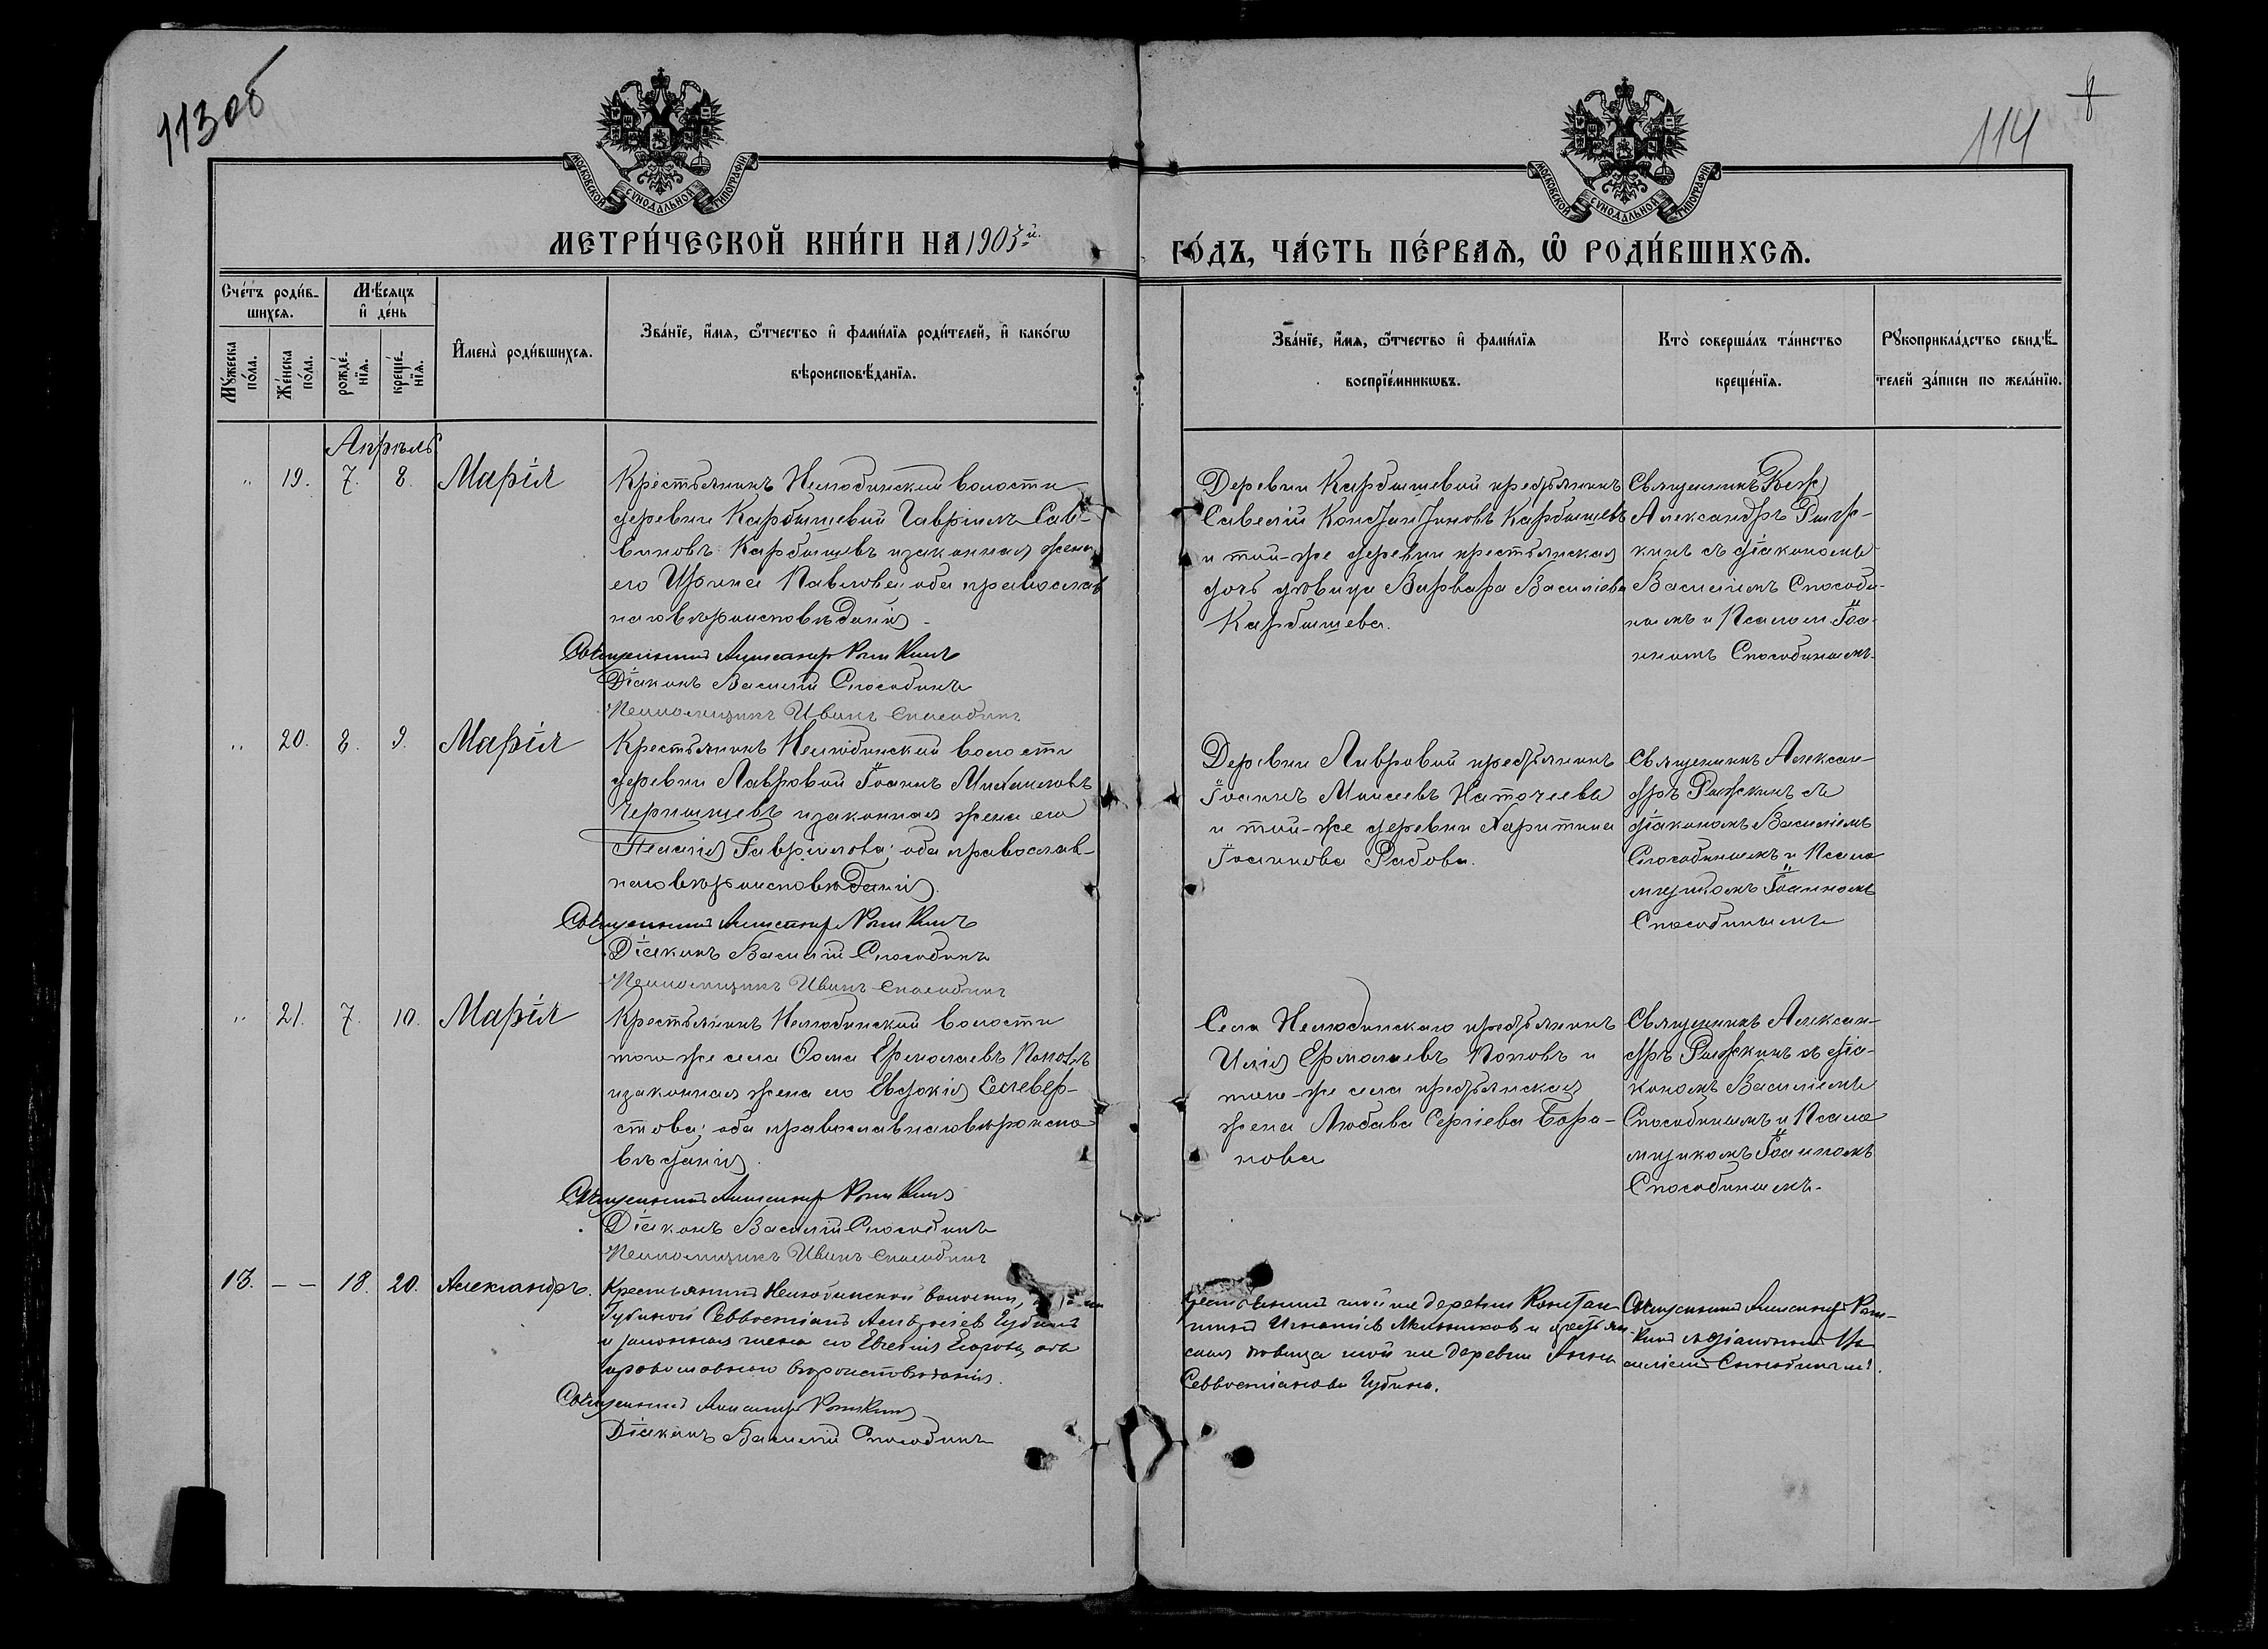 113об
114
8
МОСКОВСКОЙ СѴНОДАЛЬНОЙ ТИПОГРАФІИ
МОСКОВСКОЙ СѴНОДАЛЬНОЙ ТИПОГРАФІИ
МЕТРИ́ЧЕСКОЙ КНИ́ГИ НА 1905й.
ГО́ДЪ, ЧА́СТЬ ПЕ́РВАѦ, Ѡ РОДИ́ВШИХСѦ.
Сче́тъ роди́в-
шихсѧ.
Мѣ́сяцъ
и де́нь
Мꙋ́жеска по́ла.
Же́нска по́ла.
рожде́-нїѧ.
креще́-нїѧ.
И҆мена̀ роди́вшихсѧ.
Зва́нїе, и҆́мѧ, ѻ҆́тчество и҆ фами́лїѧ роди́телей, и҆ како́гѡ
вѣроисповѣ́данїѧ.
Зва́нїе, и҆́мѧ, ѻ҆́тчество и҆ фами́лїѧ
воспрїе́мникѡвъ.
Кто̀ соверша́лъ та́инство
креще́нїѧ.
Рꙋкоприкла́дство свидѣ́-
телей за́писи по жела́нїю.
Апрѣль
" 19. 7. 8. Марія
Крестьянинъ Нелюбинской волости
деревни Карбышевой Гавріилъ Сав-
виновъ Карбышевъ и законная жена
его Ирина Павлова; оба православ
наго вѣроисповѣданія.
Священникъ Александр Рыжкинъ
Діаконъ Василій Способинъ
Псаломщикъ Иванъ Способинъ
Деревни Карбышевой крестьянинъ
Савелій Константиновъ Карбышевъ
и той-же деревни крестьянская
дочь дѣвица Варвара Василіева
Карбышева.
Священникъ
Александръ Рыж-
кинъ съ діакономъ
Василіемъ Способи-
нымъ и Псалом. Іоа-
нномъ Способинымъ.
" 20. 8. 9. Марія
Крестьянинъ Нелюбинской волости
деревни Лавровой Іоаннъ Михаиловъ
Чернышевъ и законная жена его
Пелагія Гавріилова; оба православ-
наго вѣроисповѣданія.
Священникъ Александр Рыжкинъ
Діаконъ Василій Способинъ
Псаломщикъ Иванъ Способинъ
Деревни Лавровой крестьянинъ
Іоаннъ Моисеевъ
и той-же деревни Харитина
Іоаннова
Священникъ Алексан-
дръ Рыжкинъ съ
діакономъ Василіемъ
Способинымъ и Псало
мщикомъ Іоанномъ
Способинымъ
" 21. 7. 10. Марія
Крестьянинъ Нелюбинской волости
того-же села Ѳома Ермолаевъ Поповъ
и законная жена его Евдокія Селивер-
стова; оба православнаго вѣроиспо
вѣданія.
Священникъ Александр Рыжкинъ
Діаконъ Василій Способинъ
Псаломщикъ Иванъ Способинъ
Села Нелюбинскаго крестьянинъ
Илія Ермолаевъ Поповъ и
того-же села крестьянская
жена Любава Сергіева Бара-
нова
Священникъ Алексан-
дръ Рыжкинъ съ діа-
кономъ Василіемъ
Способинымъ и Псало
мщикомъ Іоанномъ
Способинымъ.
13. – – 18. 20. Александръ.
Крестьянинъ Нелюбинской волости,
Губиной Севвостіанъ Губинъ
и законная жена его Егорова, оба
православнаго вѣроисповѣданія.
Священникъ Александр Рыжкинъ
Діаконъ Василій Способинъ
Крестьянинъ той же деревни Констан
тинъ Игнатіев Мельников и крестьян-
ская дѣвица той же деревни Анна
Севвостіанова Губина.
Священникъ Александръ Рыж-
кинъ съ діакономъ Ва
силіемъ Способинымъ.